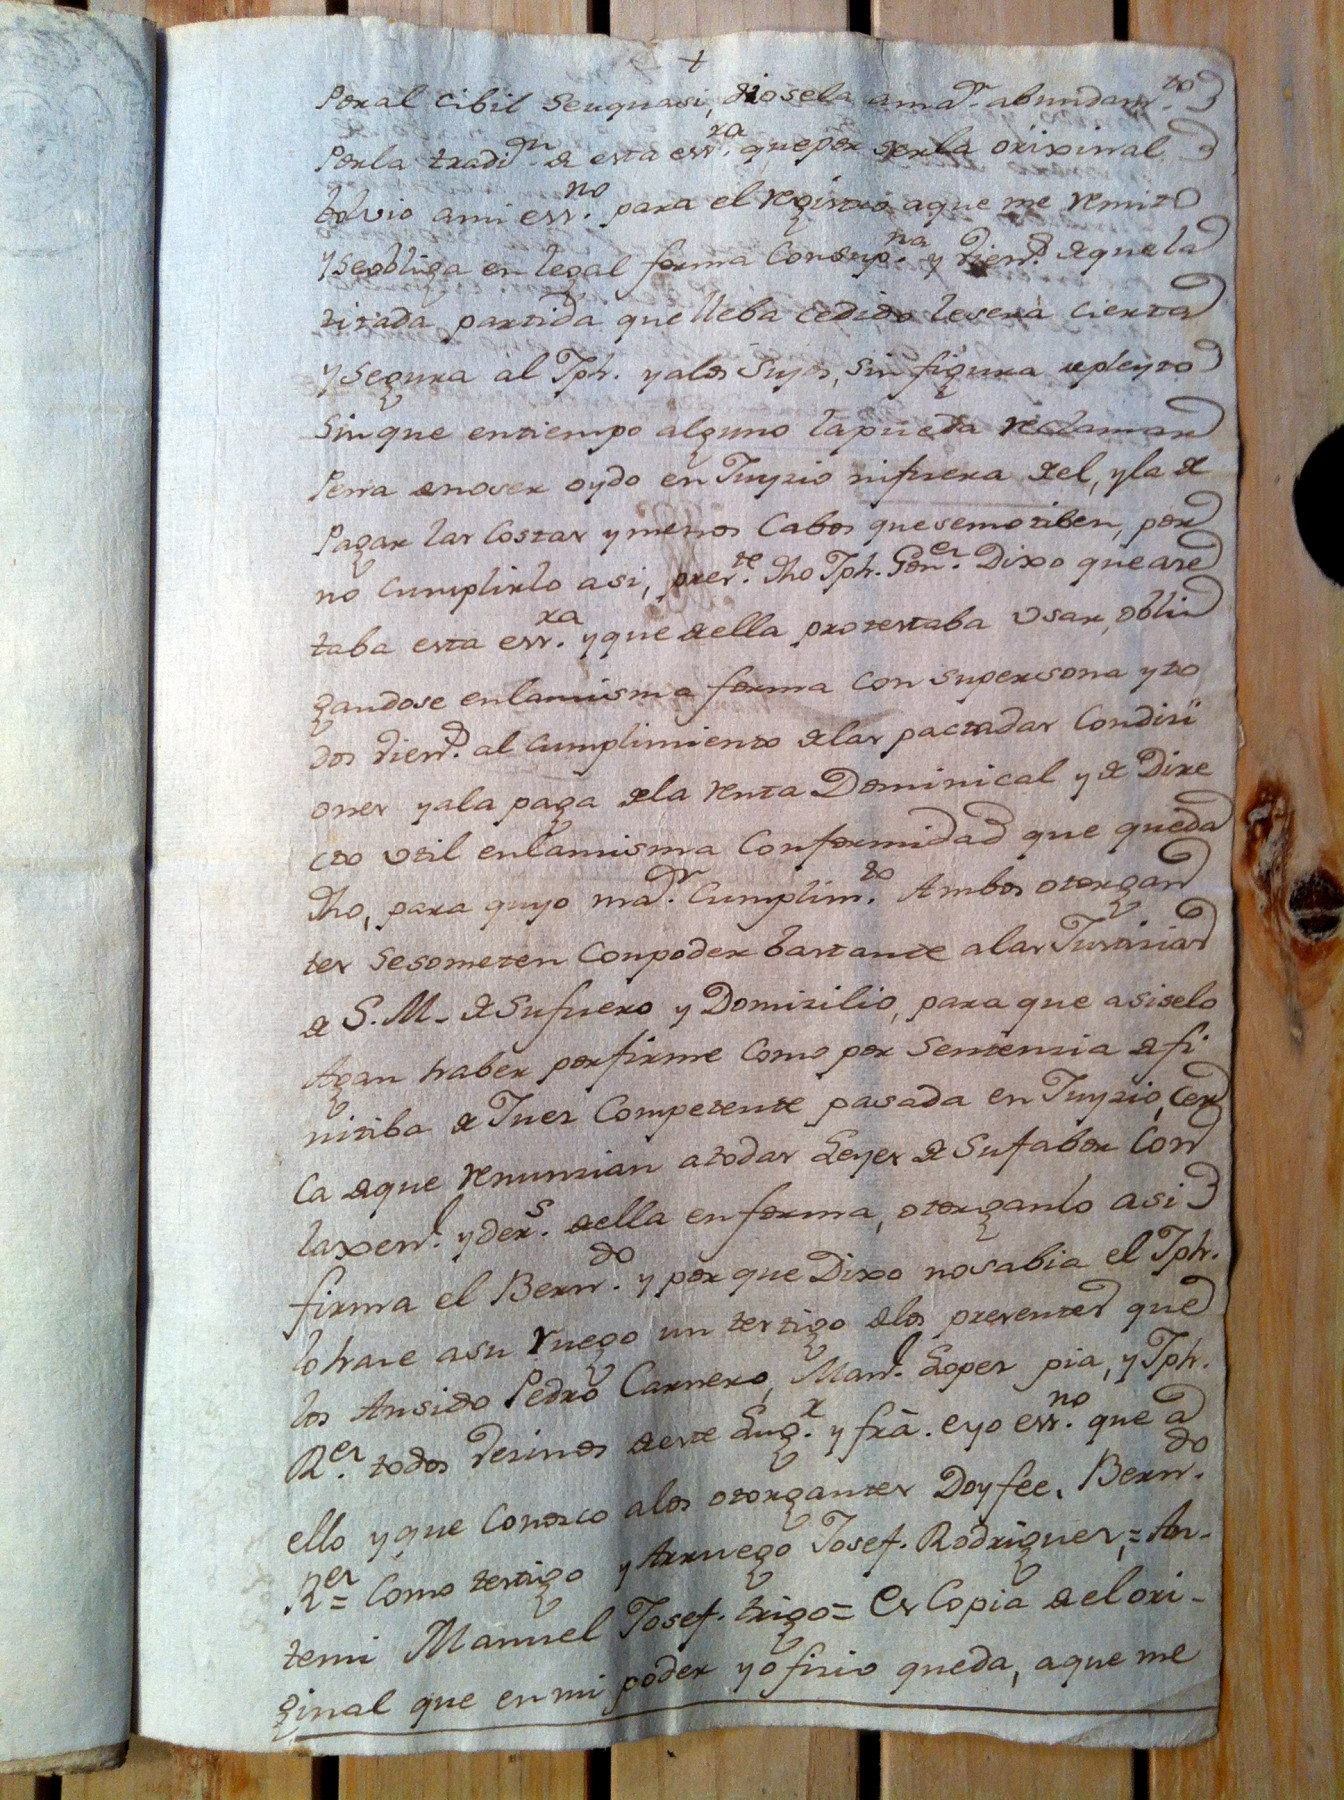 +
Poral cibil seuquasi, diosela a mar. abundamto
Porla tradin de esta essra que por serla orixinal
bolvio ami essno para el registro aque me remito
y seobliga en legal forma Consupna y viens. de quela
citada partida que lleba cedido lesera cierta
y segura al Jph. y alos Suyos, sin figura de pleyto
Sinque entiempo alguno lapueda reclamar
Pena de noser oydo en Juyzio nifuera del, y la de
Pagar las Costas y menos Cabos quesemotiben, por
no cumplirlo asi, preste. dho Jph. Gonz. Dixo que aze
taba esta essra. y que de ella protestaba Usar, obli
gandose enlamisma forma con supersona y to
dos viens. al cumplimiento delas pactadas Condizi
ones y ala paga dela renta Dominical y de Dire
cto util enlamisma Conformidad que queda
dho, para quyo mar. Cumplimto. Ambos otorgan
tes sesometen Conpoder bastante alas Justizias
de S. M. de sufuero y Domizilio, para que asiselo
Agan haber porfirme Como por Sentenzia defi
nitiba de Juez Competente pasada en Juyzio, cer
ca deque renunzian atodas Leyes de Sufabor Con
la genl. y ders. de ella en forma, otorganlo asi
firma el Berndo. y porque Dixo nosabia el Jph.
lo haze asu ruego un testigo delos presentes que
los Ansido Pedro Carnero, Manl. Lopez pia, y Jph.
Rez. todos vezinos de este Lugr. y fra. eyo essno. que a
ello y que Conozco alos otorgantes Doyfee. Berndo.
Rez = Como testigo y Arruego Josef. Rodriguez, = An-
temi Manuel Josef. trigo = Es Copia de el ori-
ginal que en mi poder y ofizio queda, aque me